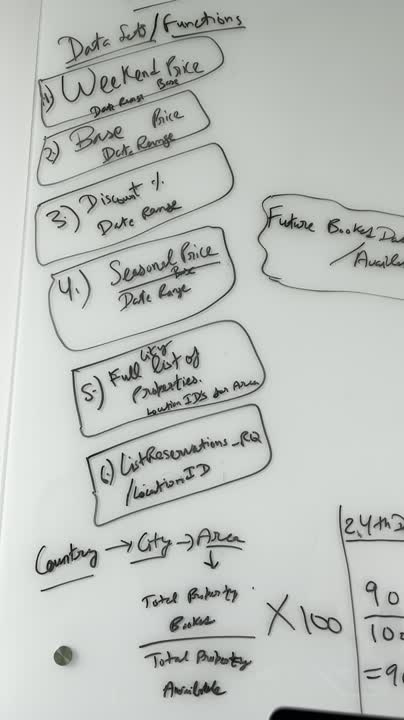 Data Sets/Functions
1.) Weekend Price
Date Range Base
2.) Base Price
Date Range
3.) Discount %
Date Range
4.) Seasonal Price
Base
Date Range
5.) Full City list of
Properties.
Location ID's for Area
6.) ListReservations_RQ
/LocationID
Future Booked
/Availa
Country → City → Area
↓
Total Property
Booked
Total Property
Available
X 100
2,4th
90
10
= 9